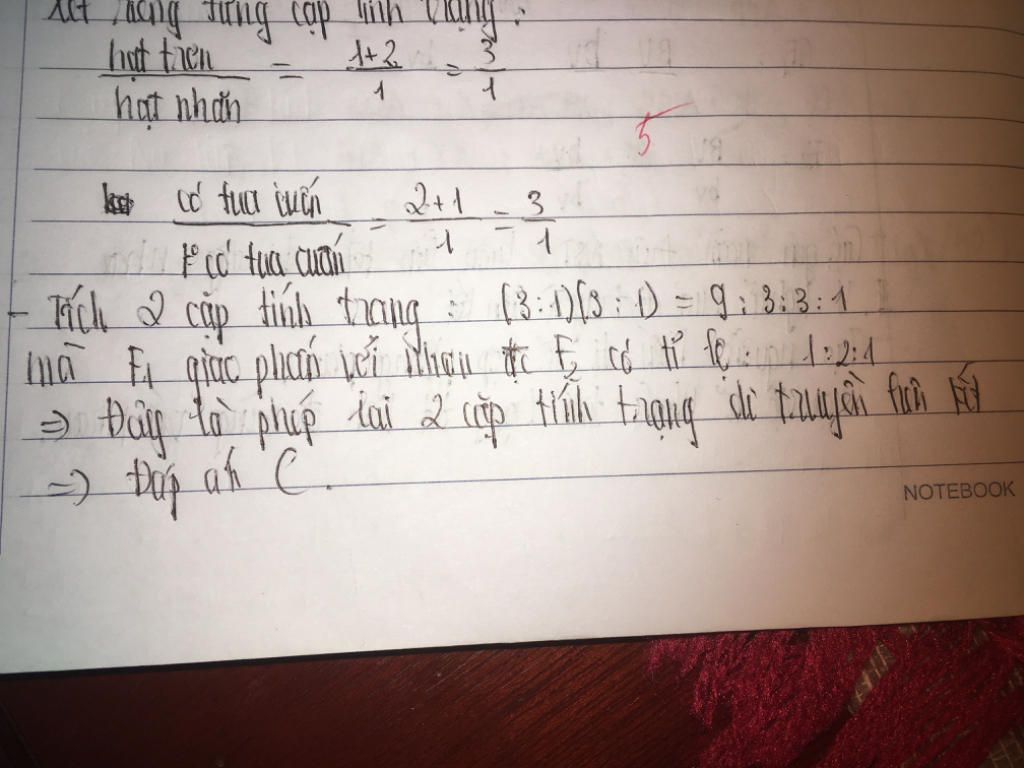 Xét riêng từng cặp tính trạng:
hạt trơn / hạt nhăn = 1+2 / 1 = 3 / 1
5
có tua cuốn / k° có tua cuốn = 2+1 / 1 = 3 / 1
- Tích 2 cặp tính trạng : (3:1)(3:1) = 9:3:3:1
mà F1 giao phấn với nhau đc F2 có tỉ lệ: 1:2:1
=> Đây là phép lai 2 cặp tính trạng di truyền liên kết
=> Đáp án C.
NOTEBOOK